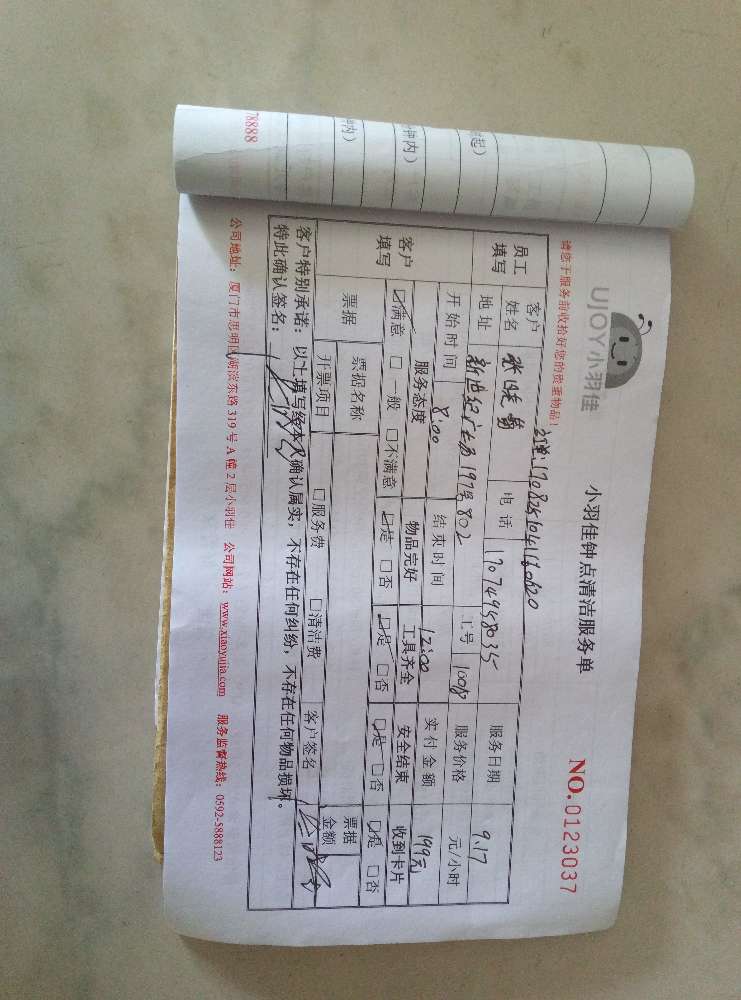 78888
钟内）
起）
UJOY小羽佳
小羽佳钟点清洁服务单
NO.0123037
请您于服务前收拾好您的贵重物品！
员工填写 客户姓名 电话 17074948035 服务日期 9.17
地址 新世纪广场 197号 802 工号 服务价格 元/小时
客户填写 开始时间 8:00 结束时间 12:00 实付金额 199元
服务态度 物品完好 工具齐全 安全结束 收到卡片
☑满意 □一般 □不满意 ☑是 □否 ☑是 □否 ☑是 □否 ☑是 □否
票据 票据名称 票据金额
开票项目 □服务费 □清洁费 客户签名
客户特别承诺：以上填写经本人确认属实，不存在任何纠纷，不存在任何物品损坏。
特此确认签名：
公司地址：厦门市思明区湖滨东路319号A幢2层小羽佳 公司网站：www.xiaoyujia.com 服务监督热线：0592-5888123